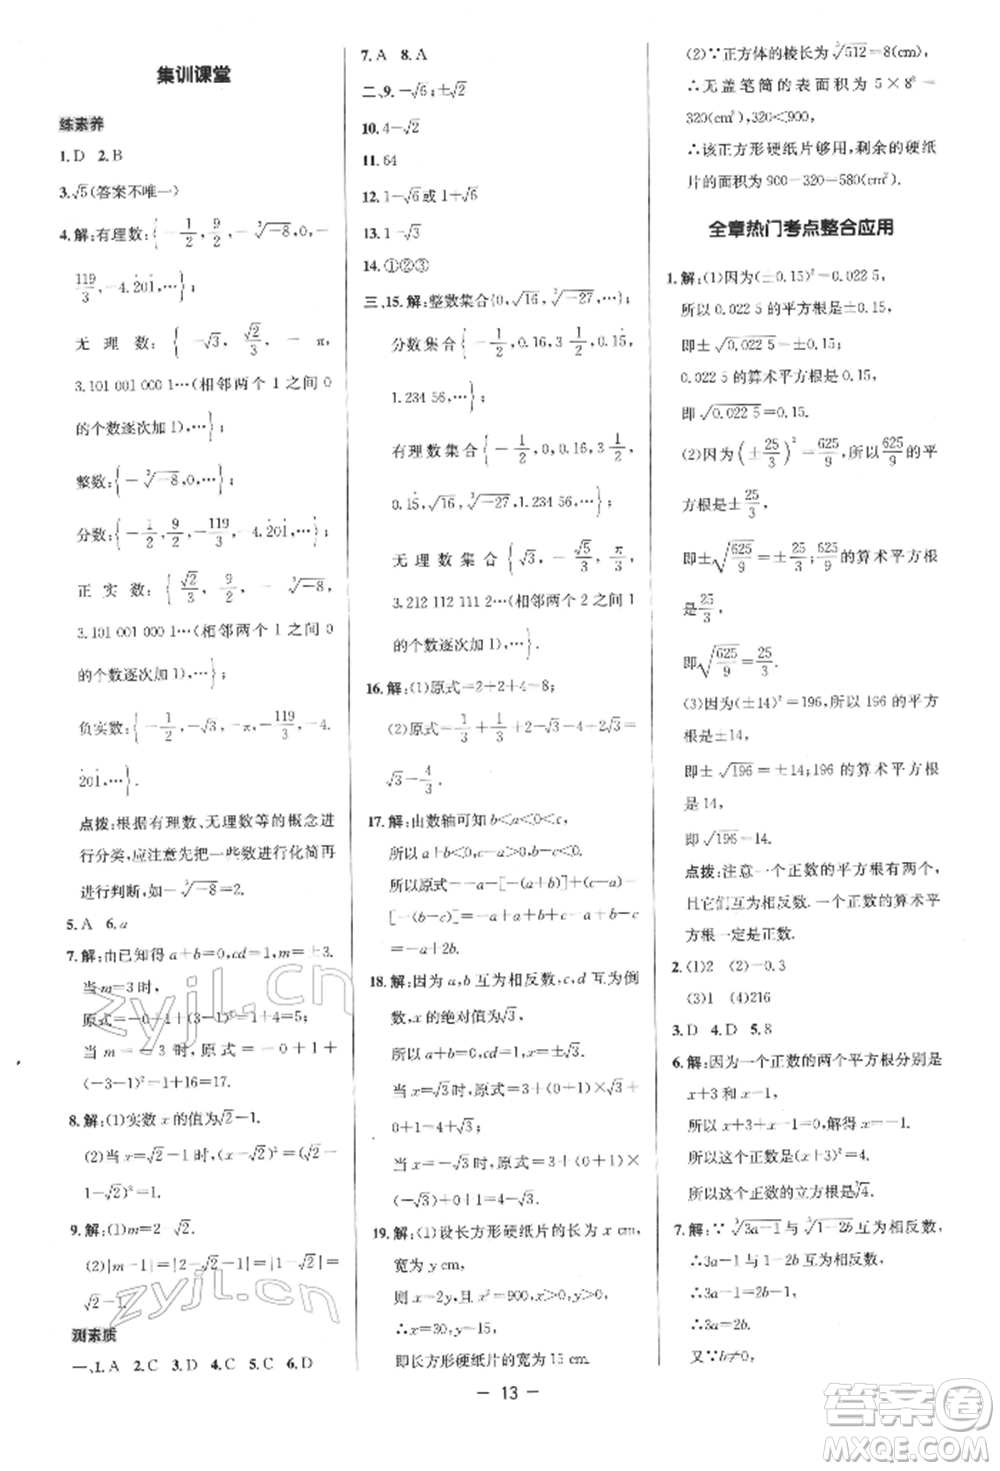 集训课堂
练素养
1.D 2.B
3.√5(答案不唯一)
4.解:有理数:{-1/2,9/2,-∛-8,0,
-119/3,-4.2̇01̇,…};
无理数:{-√3,√2/3,-π,
3.101 001 000 1…(相邻两个1之间0
的个数逐次加1),…};
整数:{-∛-8,0,…};
分数:{-1/2,9/2,-119/3,-4.2̇01̇,…};
正实数:{√2/3,9/2,-∛-8,
3.101 001 000 1…(相邻两个1之间0
的个数逐次加1),…};
负实数:{-1/2,-√3,-π,-119/3,-4.
2̇01̇,…}.
点拨:根据有理数、无理数等的概念
进行分类,应注意先把一些数进行化简再
进行判断,如-∛-8=2.
5.A 6.a
7.解:由已知得a+b=0,cd=1,m=±3.
当m=3时,
原式=0+(3-1)²+1=4+1=5;
当m=-3时,原式=0+
(-3-1)²+1=16+1=17.
8.解:(1)实数x的值为√2-1.
(2)当x=√2-1时,(x-√2)²=(√2-
1-√2)²=1.
9.解:(1)m=2-√2.
(2)|m-1|=|2-√2-1|=|1-√2|=
√2-1.
测素质
一、1.A 2.C 3.D 4.C 5.C 6.D
7.A 8.A
二、9.-√6;±√2
10.4-√2
11.64
12.1-√6或1+√6
13.1-√3
14.①②③
三、15.解:整数集合{0,√16,∛-27,…};
分数集合{-1/2,0.16,3 1/2,0.1̇5̇,
1.234 56,…};
有理数集合{-1/2,0,0.16,3 1/2,
0.1̇5̇,√16,∛-27,1.234 56,…};
无理数集合{√3,-√5/3,π/3,
3.212 112 111 2…(相邻两个2之间1
的个数逐次加1),…}.
16.解:(1)原式=2+2+4=8;
(2)原式=1/3+1/3+2-√3-4+2√3=
√3-4/3.
17.解:由数轴可知b<a<0<c,
所以a+b<0,b-c<0.
所以原式=-a-[-(a+b)]+c+
[-(b-c)]=-a+a+b+c-b+c=
-a+2b.
18.解:因为a,b互为相反数,c,d互为倒
数,x的绝对值为√3,
所以a+b=0,cd=1,x=±√3.
当x=√3时,原式=3+(0+1)×√3+
0+1=4+√3;
当x=-√3时,原式=3+(0+1)×
(-√3)+0+1=4-√3.
19.解:(1)设长方形硬纸片的长为x cm,
宽为y cm,
则x=2y,且x²=900,
∴x=30,y=15.
即长方形硬纸片的宽为15 cm.
(2)∵正方体的棱长为∛512=8(cm)
∴无盖笔筒的表面积为5×8²=
320(cm²),320<900,
∴该正方形硬纸片够用,剩余的硬纸
片的面积为900-320=580(cm²).
全章热门考点整合应用
1.解:(1)因为(±0.15)²=0.022 5,
所以0.022 5的平方根是±0.15,
即±√0.022 5=±0.15.
0.022 5的算术平方根是0.15,
即√0.022 5=0.15.
(2)因为(±25/3)²=625/9,所以625/9的平
方根是±25/3,
即±√625/9=±25/3;625/9的算术平方根
是25/3,
即√625/9=25/3.
(3)因为(±14)²=196,所以196的平方
根是±14,
即±√196=±14;196的算术平方根
是14,
即√196=14.
点拨:注意一个正数的平方根有两个,
且它们互为相反数.一个正数的算术平
方根一定是正数.
2.(1)2 (2)-0.3
(3)1 (4)216
3.D 4.D 5.8
6.解:因为一个正数的两个平方根分别是
x+3和x-1,
所以x+3+x-1=0,解得x=-1.
所以这个正数是(x+3)²=4.
所以这个正数的立方根是∛4.
7.解:∵∛3a-1与∛1-2b互为相反数,
∴3a-1与1-2b互为相反数,
∴3a-1=2b-1,
∴3a=2b.
又∵b≠0,
- 13 -
zyjl.cn
zyjl.cn
答案圈
MXQE.COM